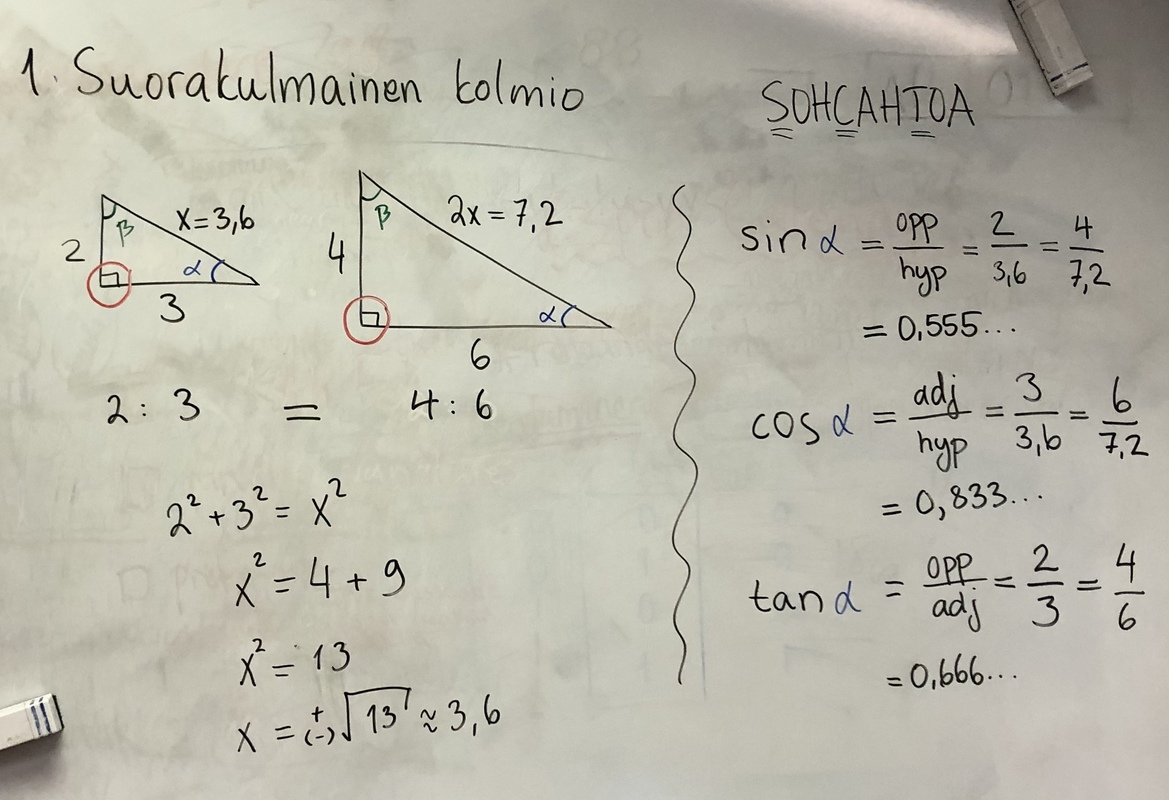 1. Suorakulmainen kolmio
2
β
x = 3,6
α
3
4
β
2x = 7,2
α
6
2 : 3 = 4 : 6
2² + 3² = x²
x² = 4 + 9
x² = 13
x = +(-) √13 ≈ 3,6
SOHCAHTOA
sin α = opp/hyp = 2/3,6 = 4/7,2
= 0,555...
cos α = adj/hyp = 3/3,6 = 6/7,2
= 0,833...
tan α = opp/adj = 2/3 = 4/6
= 0,666...